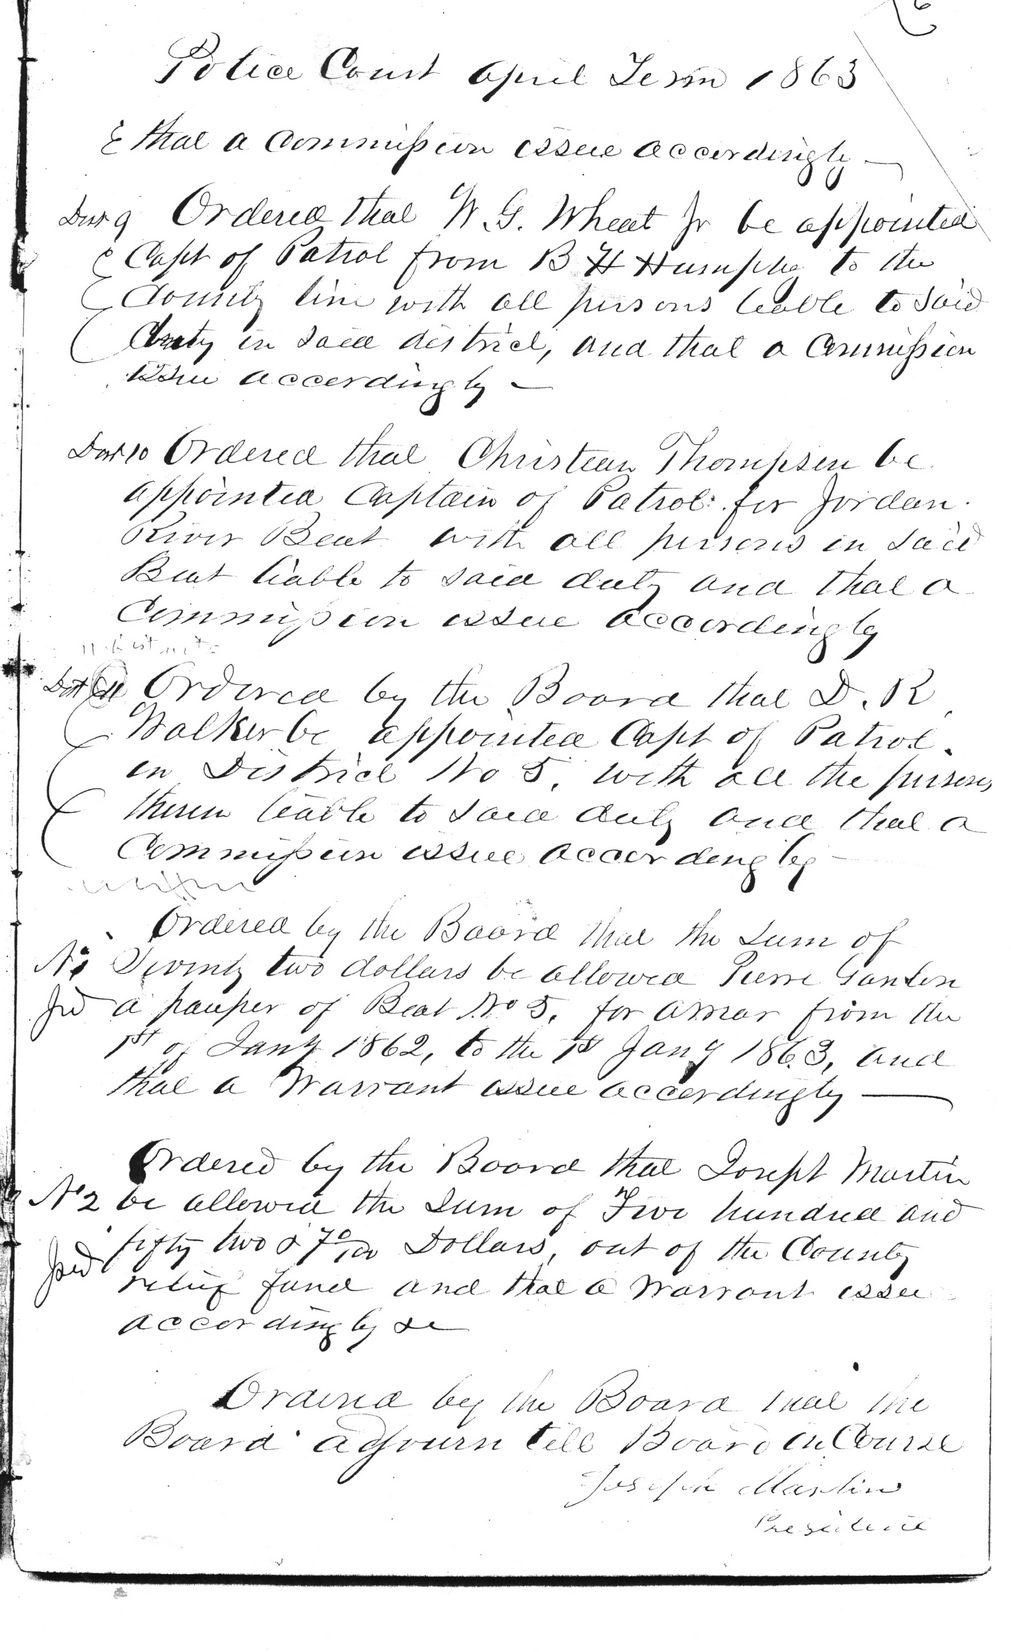 Police Court April Term 1863
& that a Commission issue accordingly —
Dist 9 Ordered that W. G. Wheat Jr be appointed
Capt of Patrol from B H Humphy to the
County line with all persons liable to said
duty in said district, and that a Commission
issue accordingly —
Dist 10 Ordered that Christian Thompson be
appointed Captain of Patrol for Jordan
River Beat with all persons in said
Beat liable to said duty and that a
Commission issue accordingly
Dist 11 Ordered by the Board that D. R.
Walker be appointed Capt of Patrol
in District No 5, with all the persons
therein liable to said duty and that a
Commission issue accordingly —
Ordered by the Board that the sum of
No 1 Seventy two dollars be allowed Pierre
a pauper of Beat No 5, for from the
1st of Jany 1862, to the 1st Jany 1863, and
that a Warrant issue accordingly —
Ordered by the Board that Joseph Martin
No 2 be allowed the sum of Five hundred and
fifty two & 70/100 Dollars, out of the County
relief fund and that a Warrant issue
accordingly &c —
Ordered by the Board that the
Board adjourn till Board in Course
Joseph Martin
President